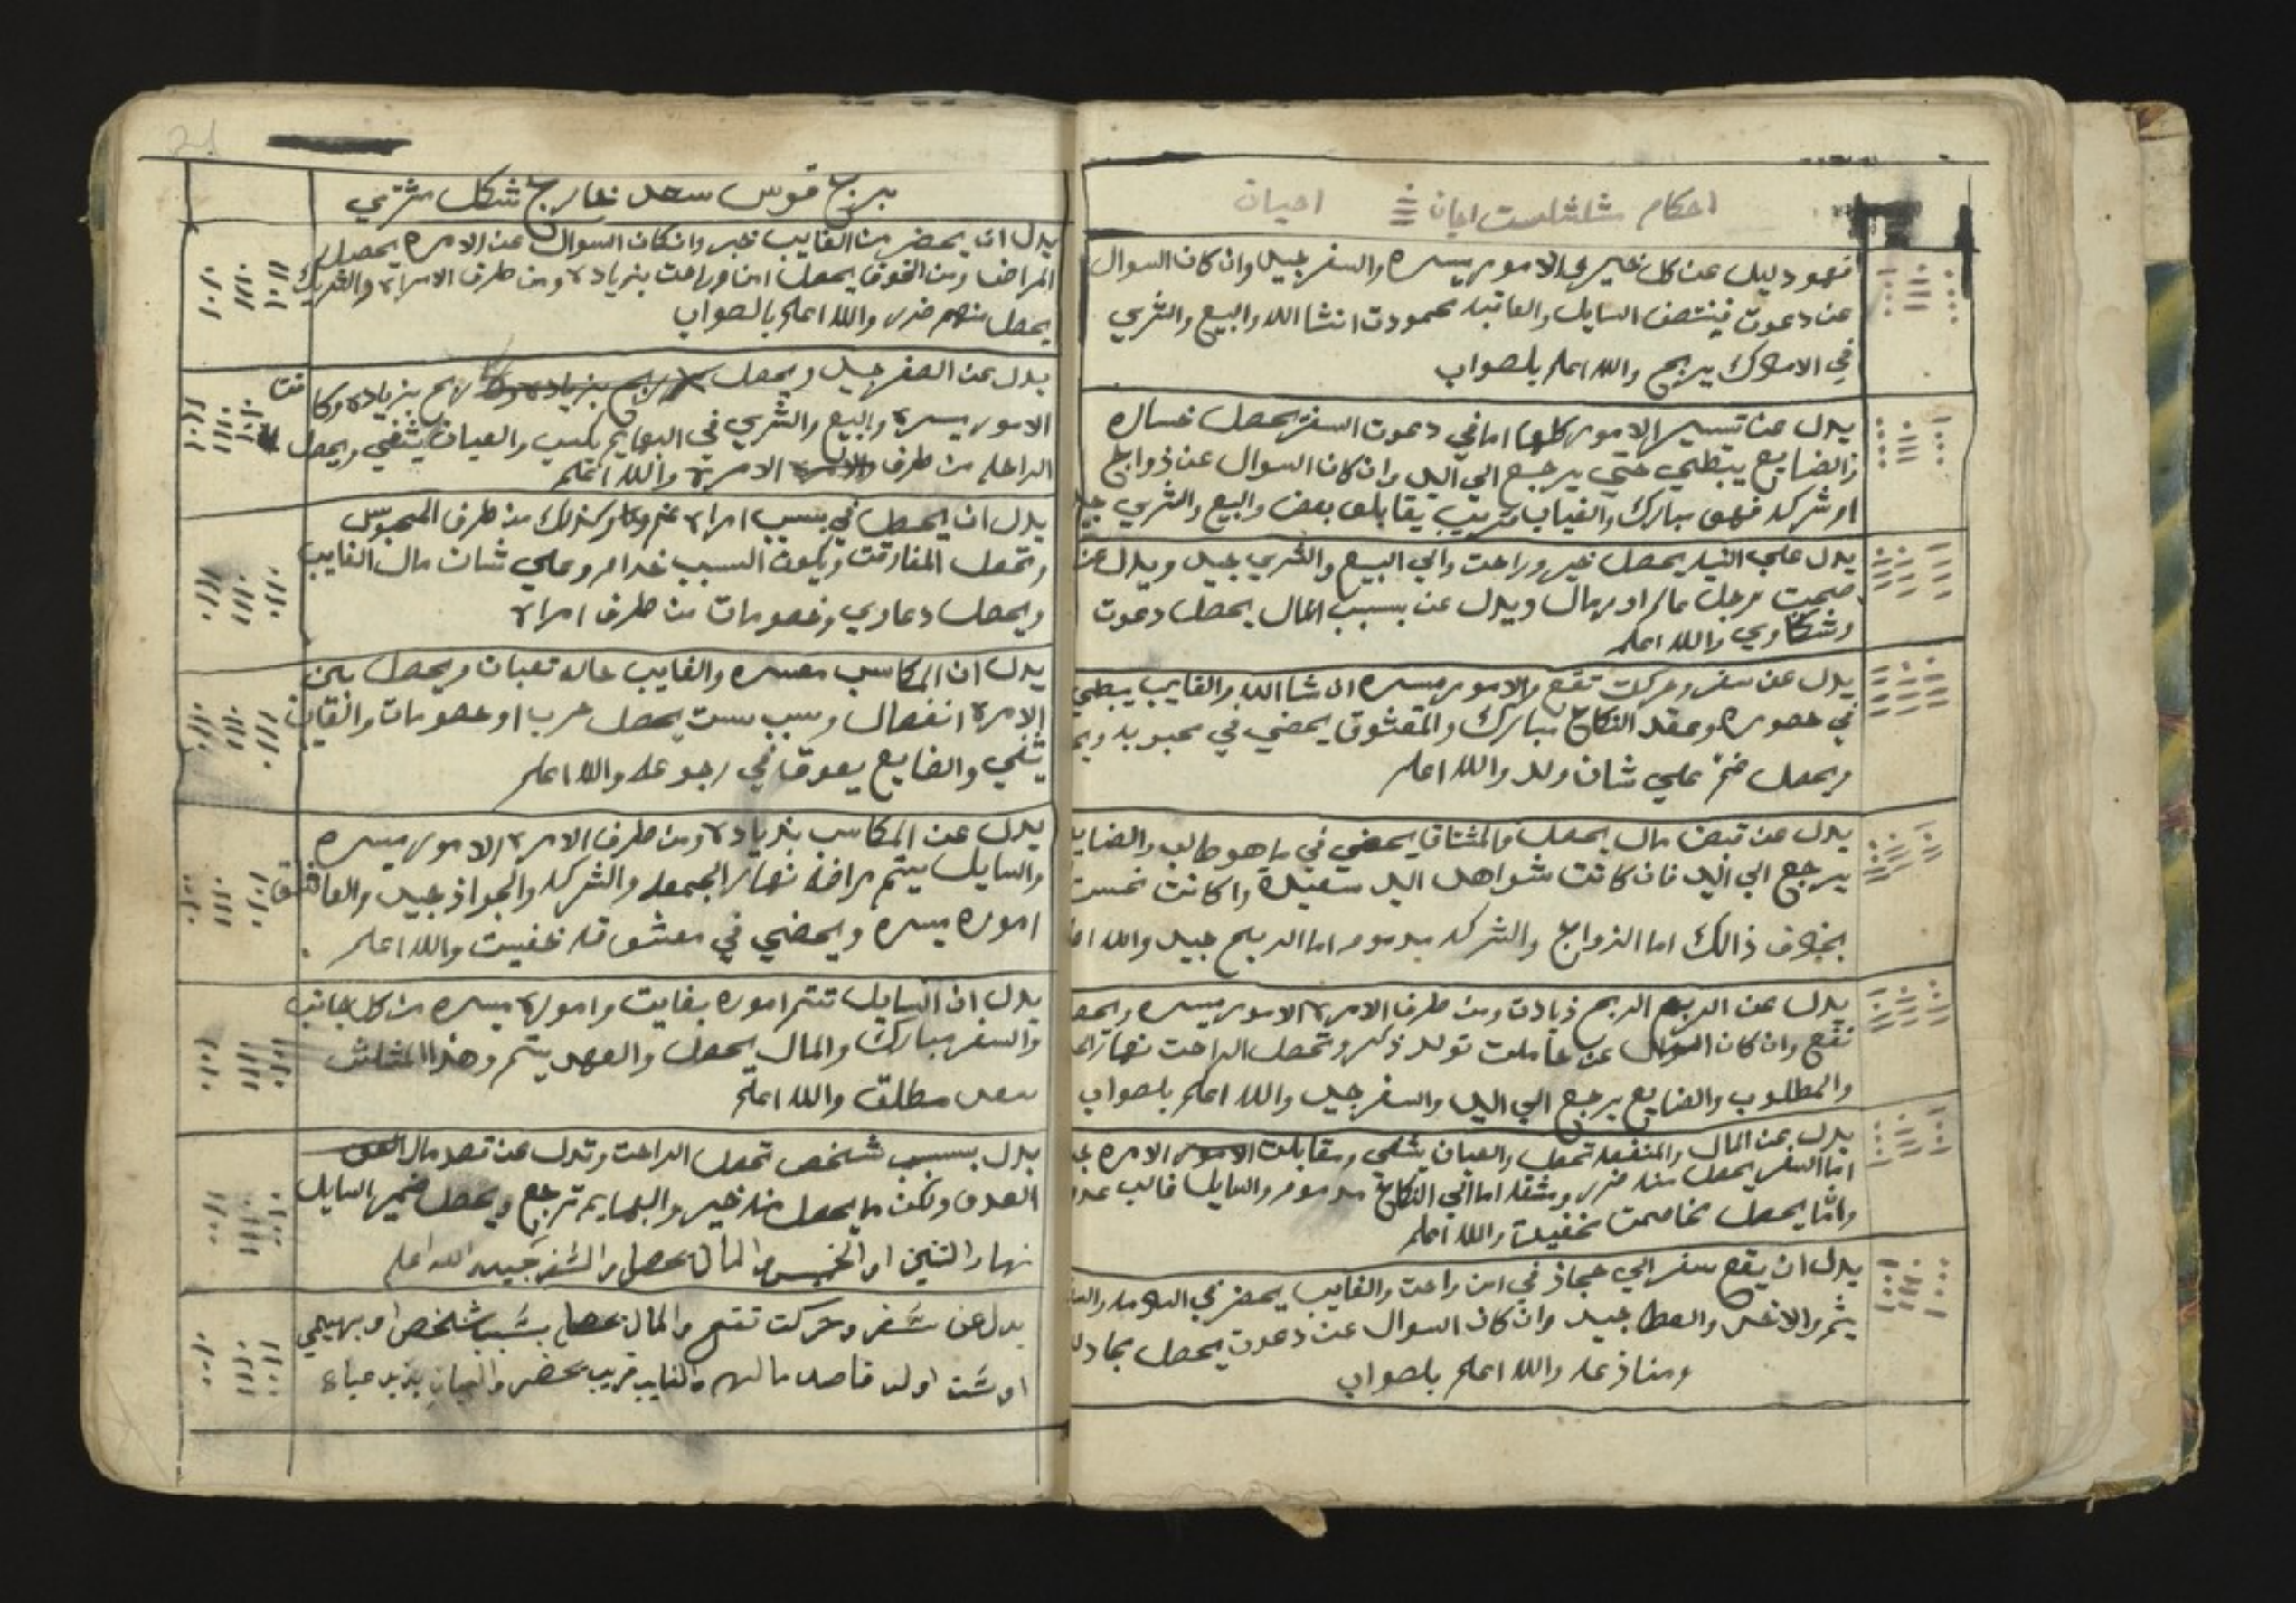 احكام مثلثات احيان احيان
فهو دليل عن كل خير والامور ميسره والسفر جيد وان كان السوال
عن دعوت فينتصف السايل والعاقبه محمودت انشا الله والبيع والشري
في الاملاك يربح والله اعلم بلصواب
يدل عن تسيير الامور كلها اما في دعوت السفر يحصل خساره
والضايع يبطي حتي يرجع الي اليد وان كان السوال عن ذواج
او شركه فهو مبارك والغياب قريب يقابلو بعض والبيع والشري
يدل علي النيه يحصل خير وراحت والي البيع والشري جيد ويدل عن
صحبت رجل عالم او رمال ويدل عن بسبب المال يحصل دعوت
وشكاوي والله اعلم
يدل عن سفر وحركت تقع والامور ميسره ان شا الله والغايب يبطي
في حضوره وعقد النكاح مبارك والمعشوق يحضي في محبوبه
ويحصل غم علي شان ولد والله اعلم
يدل عن قبض مال يحصل والمشتاق يحضي في ما هو طالب والضايع
يرجع الي اليد فان كانت شواهد اليد سعيدة واكانت نحست
بخلاف ذالك اما الزواج والشركه مدموم اما الربح جيد والله
يدل عن الربح ذيادت ومن طرف الامرة الامور ميسره
تقع وان كان السوال عن حاملت تولد ذكر وتحصل الراحت نهار
والمطلوب والضايع يرجع الي اليد والسفر جيد والله اعلم بلصواب
يدل عن المال والمنفعه تحصل والعيان يشفي ومقابلت الامره
اما السفر يحصل منه ضرر ومشقه اما في النكاح مدموم والسايل غالب
وانما يحصل مخاصمت خفيفت والله اعلم
يدل ان يقع سفر الي حجاز في امن راحت والغايب يحضر في
يتم والاخد والعطا جيد وان كان السوال عن دعوت يحصل
ومنازعه والله اعلم بلصواب
21
برج قوس سعد خارج شكل مشتري
يدل ان يحضر من الغايب خبر وان كان السوال عن الامره يحصل
المراضا ومن الخوف يحصل امن وراحت بزيادة ومن طرف الامراة والشريك
يحصل منهم ضرر والله اعلم بالصواب
يدل عن السفر جيد ويحصل ربح بزيادة
الامور ميسرة والبيع والشري في البهايم بكسب والعيان يشفي ويحصل
الراحه من طرف الامرة والله اعلم
يدل ان يحصل في بسبب امراة غم وكذلك من طرف المحبوس
وتحصل المفارقت ويكون السبب خدام وعلي شان مال الغايب
ويحصل دعاوي وخصومات من طرف امراة
يدل ان المكاسب معسره والغايب حاله تعبان ويحصل بين
الامرة انفصال وسبب ست يحصل حرب او خصومات والعيان
يشفي والضايع يعوق في رجوعه والله اعلم
يدل عن المكاسب بذيادة ومن طرف الامرة الامور ميسره
والسايل يتم مراضه نهار الجمعه والشركه والجواذ جيد والعاشق
اموره ميسره ويحضي في معشوقه خفيت والله اعلم
يدل ان السايل تتم اموره بغايت واموره ميسره من كل جانب
والسفر مبارك والمال يحصل والعهد يتم وهذا المثلث
سعد مطلق والله اعلم
يدل بسبب شخص تحصل الراحت وتدل عن قصد مال
العدو ولكن ما يحصل منه خير والبهايم ترجع ويحصل ضمير السايل
نهار التنين او الخميس والمال يحصل والسفر جيد والله اعلم
يدل عن سفر وحركت تقع والمال يحصل بسبب شخص او بهيمي
او ست او له قاصد مالهم والغايب قريب يحضر والعيان يذيد